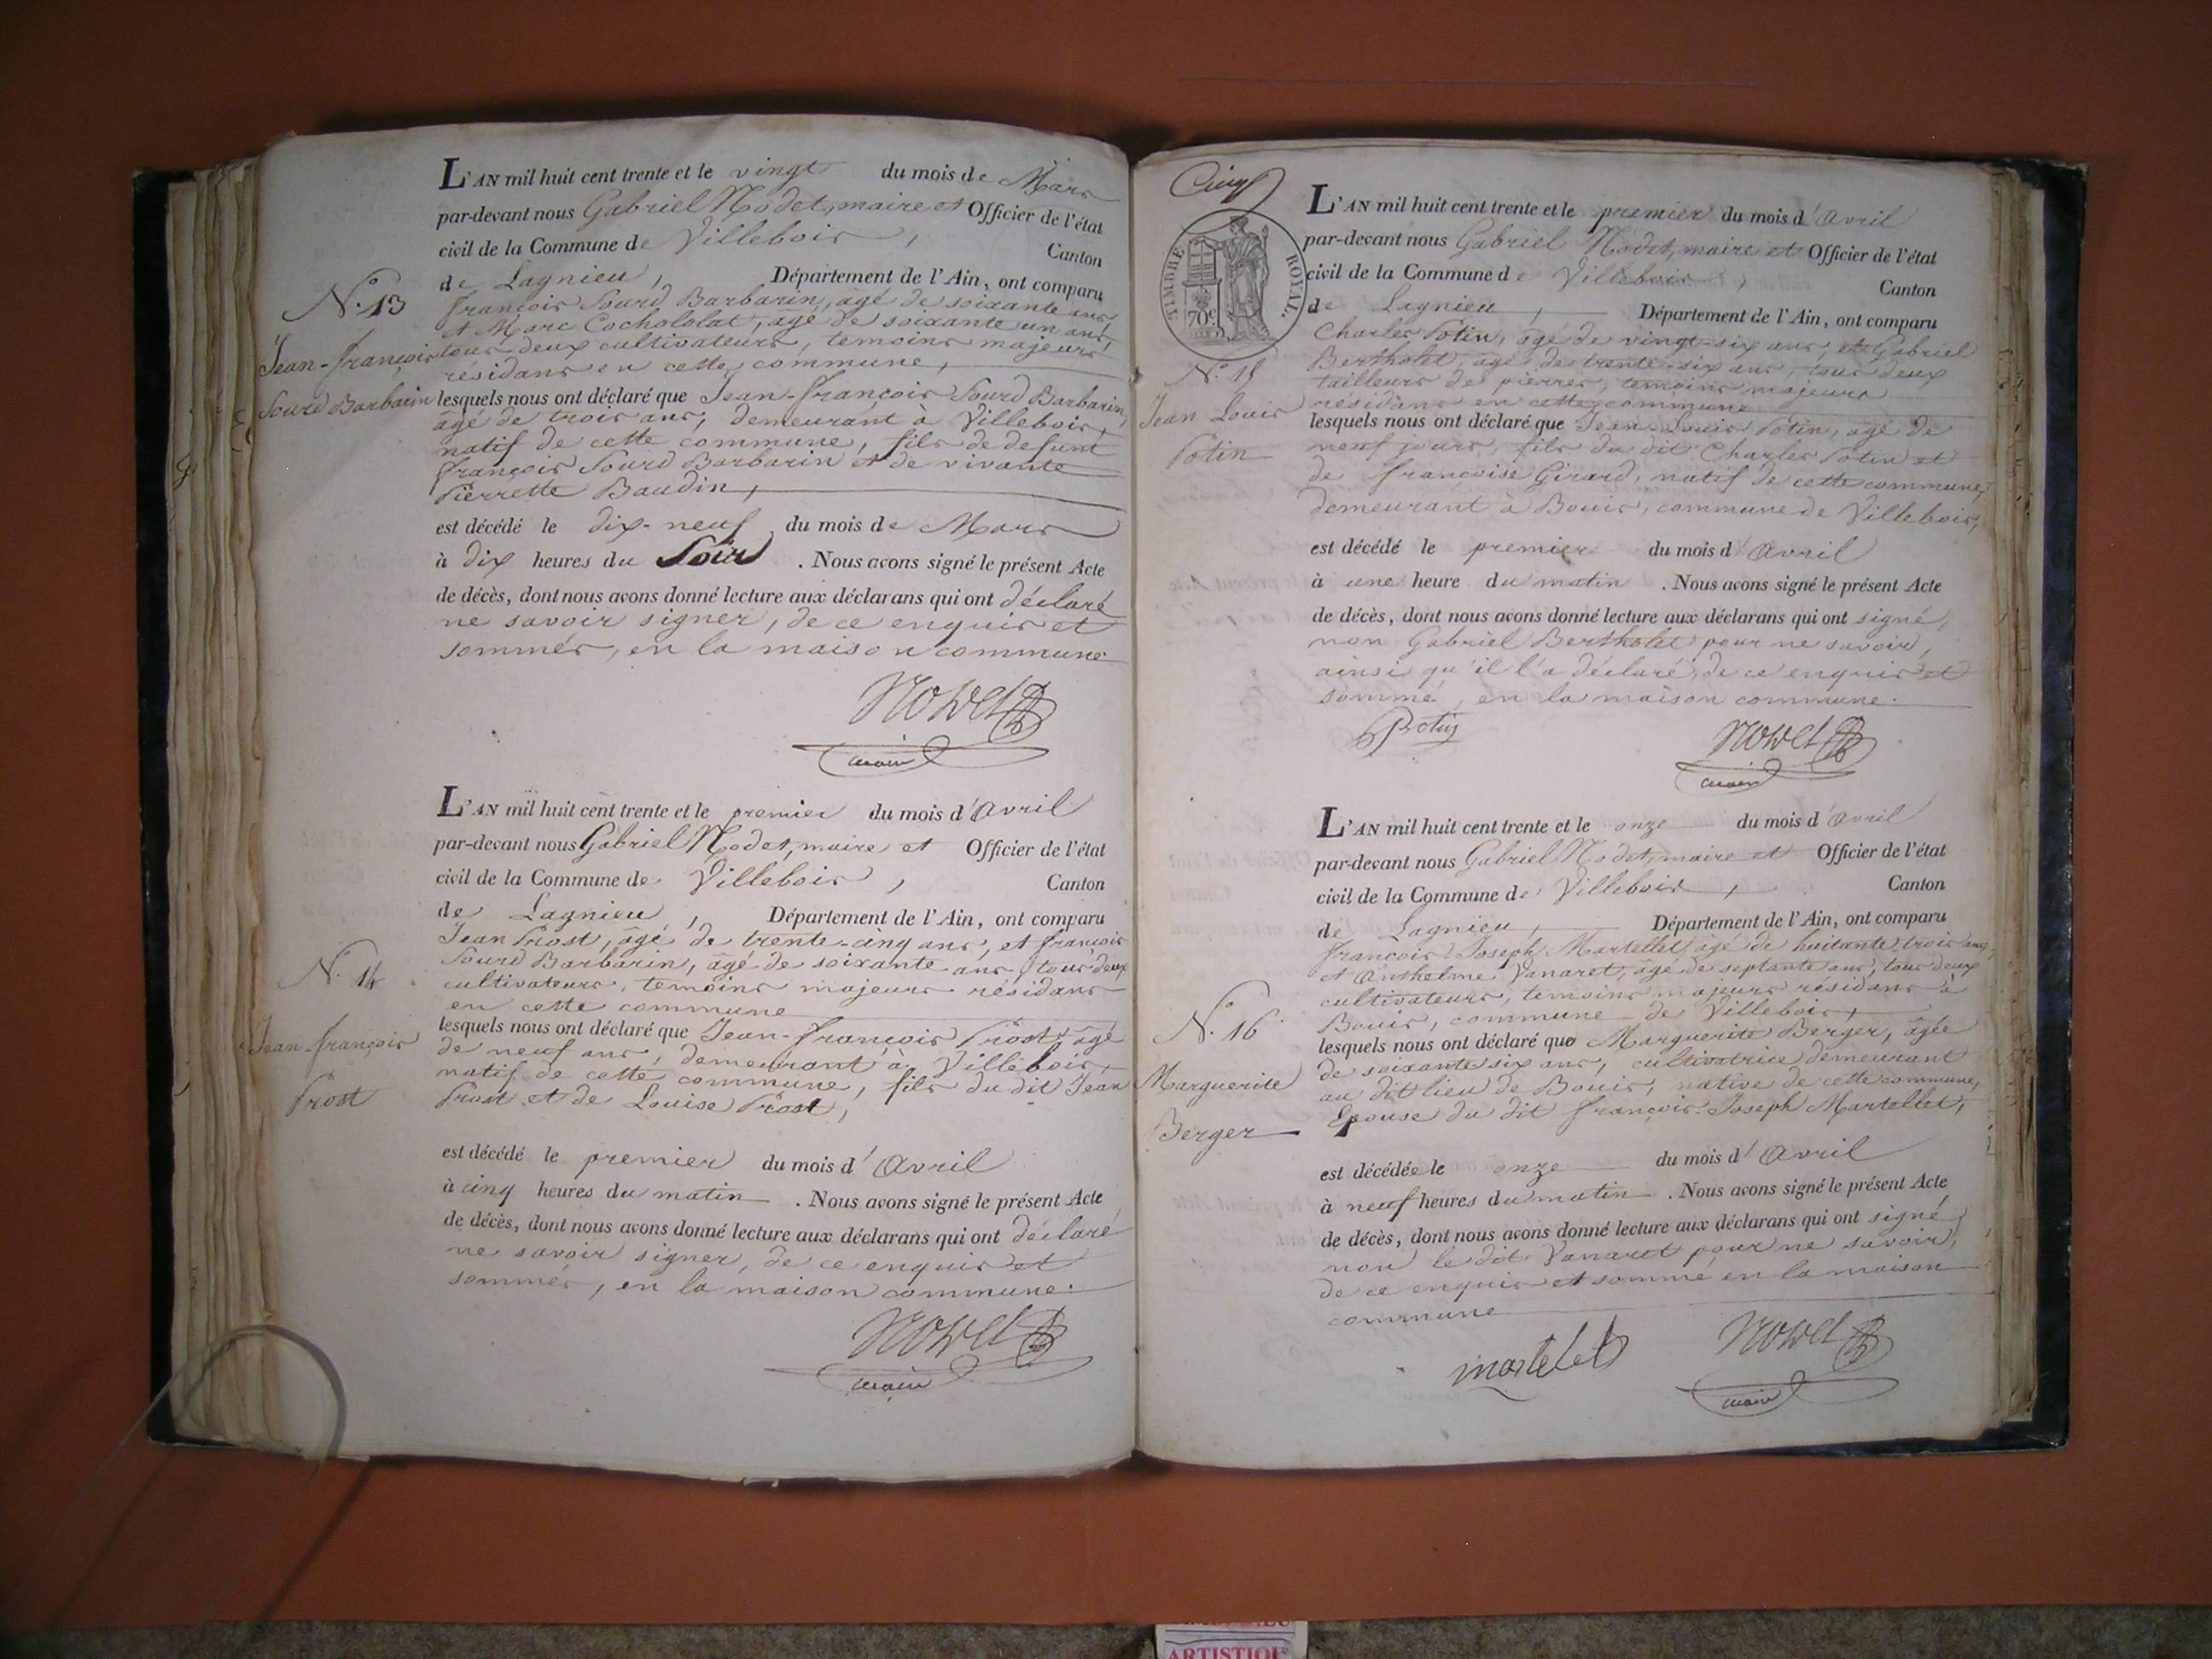 L'AN mil huit cent trente et le vingt du mois de Mars
par-devant nous Gabriel Nodet, maire et Officier de l'état
civil de la Commune de Villebois, Canton
de Lagnieu, Département de l'Ain, ont comparu
françois Sourd Barbarin, âgé de soixante ans
et Marc Cochololat, âgé de soixante un ans,
tous deux cultivateurs, temoins majeurs
résidans en cette commune,
N.º 13
Jean-françois
Sourd Barbarin
lesquels nous ont déclaré que Jean-françois Sourd Barbarin,
âgé de trois ans, demeurant à Villebois,
natif de cette commune, fils de defunt
françois Sourd Barbarin et de vivante
Pierrette Baudin,
est décédé le dix-neuf du mois de Mars
à dix heures du Soir . Nous avons signé le présent Acte
de décès, dont nous avons donné lecture aux déclarans qui ont déclaré
ne savoir signer, de ce enquis et
sommés, en la maison commune.
Nodet
maire
L'AN mil huit cent trente et le premier du mois d'Avril
par-devant nous Gabriel Nodet, maire et Officier de l'état
civil de la Commune de Villebois, Canton
de Lagnieu, Département de l'Ain, ont comparu
Jean Prost, âgé de trente-cinq ans, et françois
Sourd Barbarin, âgé de soixante ans, tous deux
cultivateurs, temoins majeurs résidans
en cette commune
N.º 14
Jean-françois
Prost
lesquels nous ont déclaré que Jean-françois Prost, âgé
de neuf ans, demeurant à Villebois,
natif de cette commune, fils du dit Jean
Prost et de Louise Prost,
est décédé le premier du mois d'Avril
à cinq heures du matin . Nous avons signé le présent Acte
de décès, dont nous avons donné lecture aux déclarans qui ont déclaré
ne savoir signer, de ce enquis et
sommés, en la maison commune.
Nodet
maire
Cinq
TIMBRE ROYAL.
70c.
L'AN mil huit cent trente et le premier du mois d'Avril
par-devant nous Gabriel Nodet, maire et Officier de l'état
civil de la Commune de Villebois, Canton
de Lagnieu, Département de l'Ain, ont comparu
Charles Potin, âgé de vingt-six ans, et Gabriel
Bertholet, âgé de trente-six ans, tous deux
tailleurs de pierres, temoins majeurs
résidans en cette commune
N.º 15
Jean Louis
Potin
lesquels nous ont déclaré que Jean-Louis Potin, âgé de
neuf jours, fils du dit Charles Potin et
de françoise Girard, natif de cette commune,
demeurant à Bouis, commune de Villebois,
est décédé le premier du mois d'Avril
à une heure du matin . Nous avons signé le présent Acte
de décès, dont nous avons donné lecture aux déclarans qui ont signé,
non Gabriel Bertholet pour ne savoir,
ainsi qu'il l'a déclaré, de ce enquis et
sommé, en la maison commune.
Potin
Nodet
maire
L'AN mil huit cent trente et le onze du mois d'Avril
par-devant nous Gabriel Nodet, maire et Officier de l'état
civil de la Commune de Villebois, Canton
de Lagnieu, Département de l'Ain, ont comparu
françois-Joseph Martellet, âgé de huitante trois ans,
et Anthelme Vanaret, âgé de septante ans, tous deux
cultivateurs, temoins majeurs résidans à
Bouis, commune de Villebois,
N.º 16
Marguerite
Berger
lesquels nous ont déclaré que Marguerite Berger, âgée
de soixante six ans, cultivatrice demeurant
au dit lieu de Bouis, native de cette commune,
Epouse du dit françois-Joseph Martellet,
est décédée le onze du mois d'Avril
à neuf heures du matin . Nous avons signé le présent Acte
de décès, dont nous avons donné lecture aux déclarans qui ont signé,
non le dit Vanaret pour ne savoir,
de ce enquis et sommé en la maison
commune
martelet
Nodet
maire
ARTISTIQUE